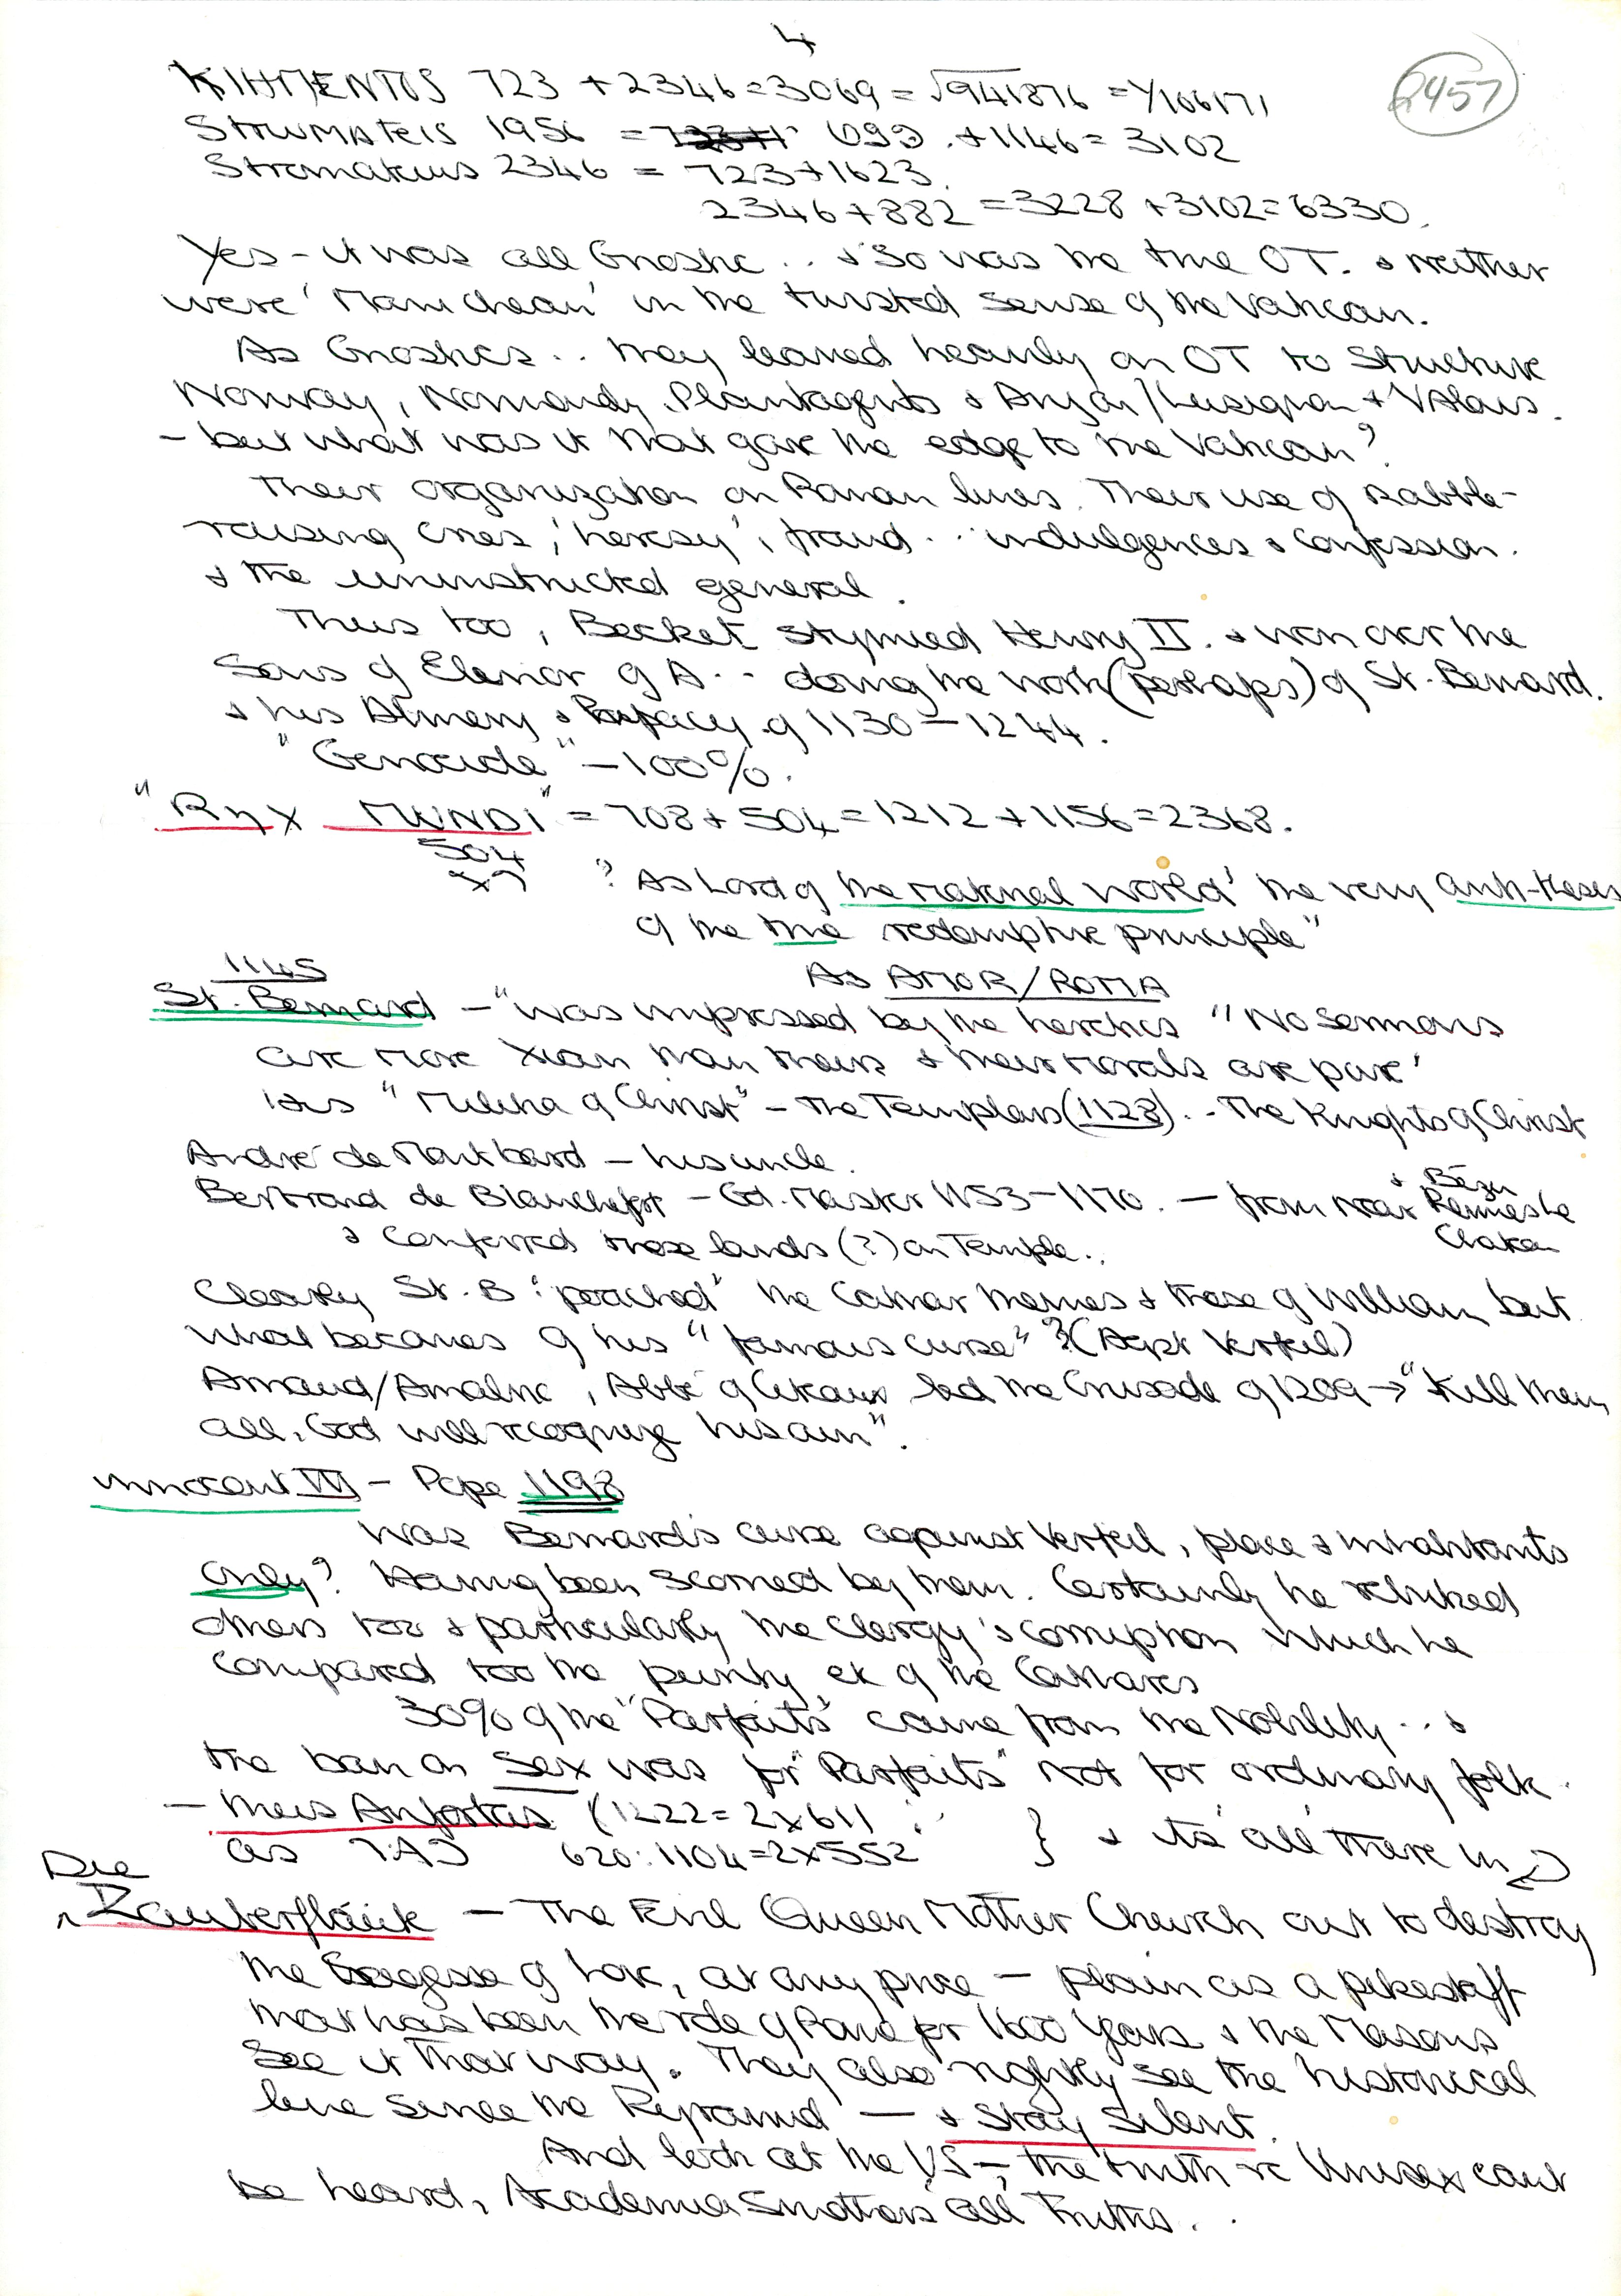 4
2457
723 + 2346 = 3069 = √941876 = 
1956 = 699 . + 1146 = 3102
Stromateius 2346 = 723 + 1623.
2346 + 882 = 3228 + 3102 = 6330.
Yes - it was all Gnostic .. & so was the true OT. & neither
were 'Manichean' in the twisted sense of the Vatican.
As Gnostics .. they leaned heavily on OT to structure
Norway, Normandy, Plantagents & Anjou/Lusignan + Valois.
- but what was it that gave the edge to the Vatican?
Their organization on Roman lines. Their use of rabble-
raising cries, 'heresy', fraud .. indulgences & confession.
& the uninstructed general.
Thus too, Becket stymied Henry II. & won over the
Sons of Elenor of A .. doing the work (perhaps) of St. Bernard.
& his & Papacy of 1130 - 1244.
"Genocide" - 100%.
"Rηx MUNDI" = 708 + 504 = 1212 + 1156 = 2368.
504
? As Lord of the material world' the very anti-theses
of the true redemptive principle"
As AMOR/ROMA
1145
St. Bernard - "was impressed by the heretics "No sermons
are more Xian than theirs & their morals are pure'
His "Militia of Christ" - The Templars (1128) .. The Knights of Christ
André de Montbard - his uncle.
Bertrand de Blanchefort - Gd. Master 1153-1170. - from near Rennes le
& Bézu
Chateau
& conferred these lands (?) on Temple ..
Clearly St. B 'poached' the Cathar themes & those of William but
what becomes of his "famous curse"? (Agst Verfeil)
Arnaud/Amalric, Abbé of Citeaux led the Crusade of 1209 → "Kill them
all, God will recognize his own".
Innocent III - Pope 1198
Was Bernard's curse against Verfeil, place & inhabitants
only? Having been scorned by them. Certainly he rebuked
others too & particularly the clergy's corruption which he
compared too the purity etc of the Cathares
30% of the "Parfaits" came from the Nobility .. &
the ban on sex was for "Parfaits" not for ordinary folk.
- thus Anfortas (1222 = 2x611
as 620:1104 = 2x552 } & its all there in
Die
Zauberflöte - The Evil Queen Mother Church out to destroy
the Sagesse of tok, at any price - plain as a pikestaff
that has been the role of Rome for 1600 years & the Masons
see it that way. They also rightly see the historical
line since the - & stay silent.
And look at the US -, the truth re Unisex cant
be heard, Academia smothers all Truths. ..